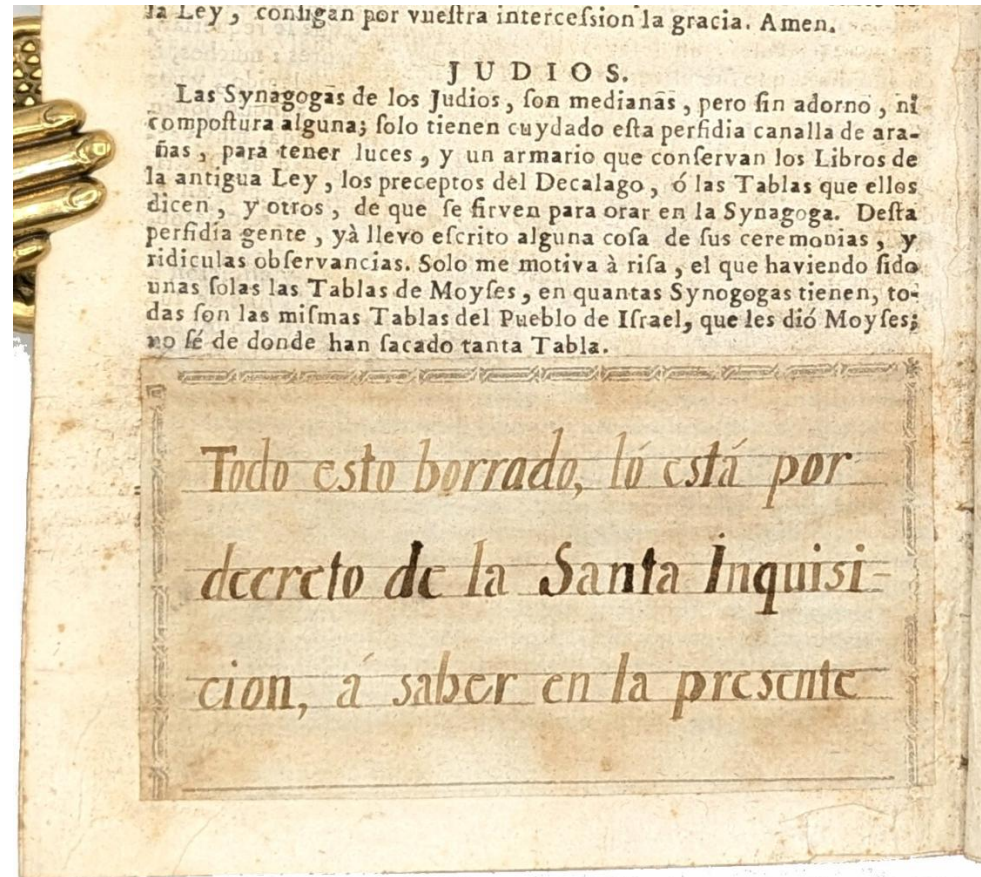 la Ley, consigan por vuestra intercession la gracia. Amen.
JUDIOS.
Las Synagogas de los Judios, son medianas, pero sin adorno, ni
compostura alguna; solo tienen cuydado esta perfidia canalla de ara-
ñas, para tener luces, y un armario que conservan los Libros de
la antigua Ley, los preceptos del Decalago, ó las Tablas que ellos
dicen, y otros, de que se sirven para orar en la Synagoga. Desta
perfidia gente, yà llevo escrito alguna cosa de sus ceremonias, y
ridiculas observancias. Solo me motiva à risa, el que haviendo sido
unas solas las Tablas de Moyses, en quantas Synogogas tienen, to-
das son las mismas Tablas del Pueblo de Israel, que les dió Moyses;
no sé de donde han sacado tanta Tabla.
Todo esto borrado, ló está por
decreto de la Santa Inquisi-
cion, á saber en la presente